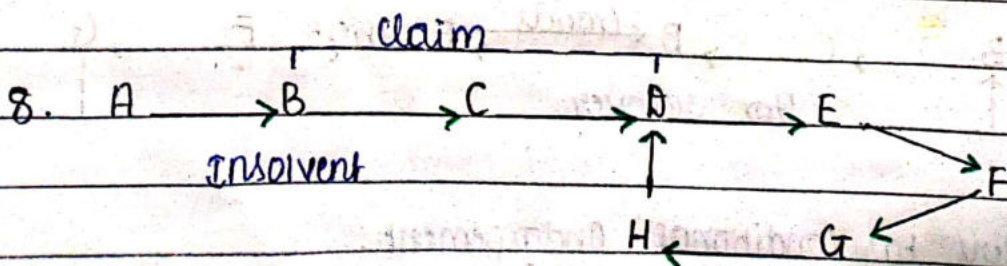 claim
8. A B C D E
Insolvent
F
H G